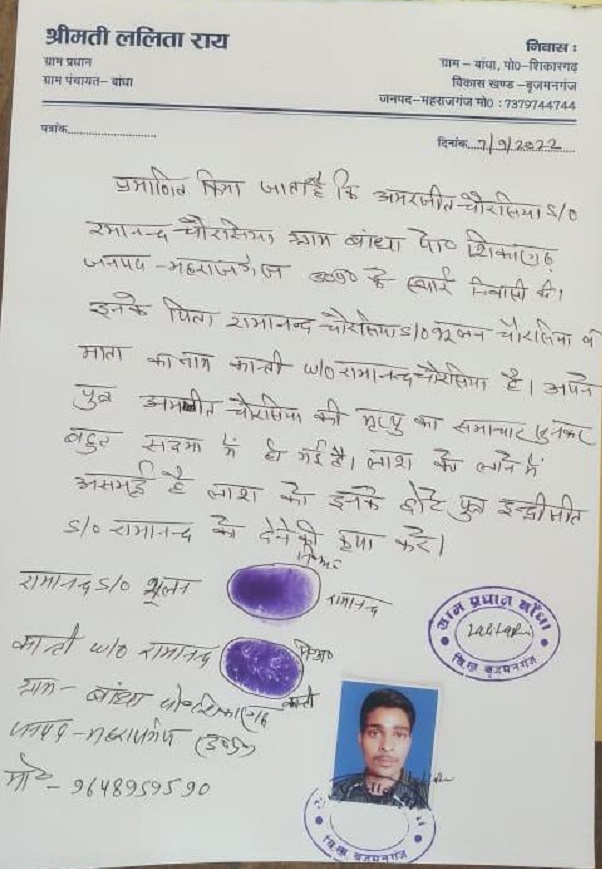 श्रीमती ललिता राय
ग्राम प्रधान
ग्राम पंचायत- बांधा
निवास :
ग्राम – बांधा, पो०-शिकारगढ़
विकास खण्ड -बृजमनगंज
जनपद-महराजगंज मो० : 7379744744
पत्रांक..............................
दिनांक....7/9/2022
प्रमाणित किया जाता है कि अमरजीत चौरसिया S/O
रमानन्द चौरसिया ग्राम बांधा पो० शिकारगढ़
जनपद - महराजगंज उ०प्र० के स्थाई निवासी थे।
इनके पिता रामानन्द चौरसिया S/O भूलन चौरसिया व
माता का नाम कान्ती W/O रामानन्द चौरसिया है। अपने
पुत्र अमरजीत चौरसिया की मृत्यु का समाचार सुनकर
बहुत सदमा में हो गई है। लाश को लाने में
असमर्थ है लाश को इनके छोटे पुत्र इन्द्रजीत
S/O रामानन्द को देने की कृपा करें।
रामानन्द S/O भूलन
रामानन्द
कान्ती W/O रामानन्द
कान्ती
ग्राम - बांधा पो० शिकारगढ़
जनपद - महराजगंज (उ०प्र०)
मो० - 9648959590
ग्राम प्रधान बाँधा
Lalita Rai
वि.ख. बृजमनगंज
वि.ख. बृजमनगंज